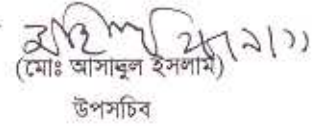 (মোঃ আসাদুল ইসলাম)
উপসচিব